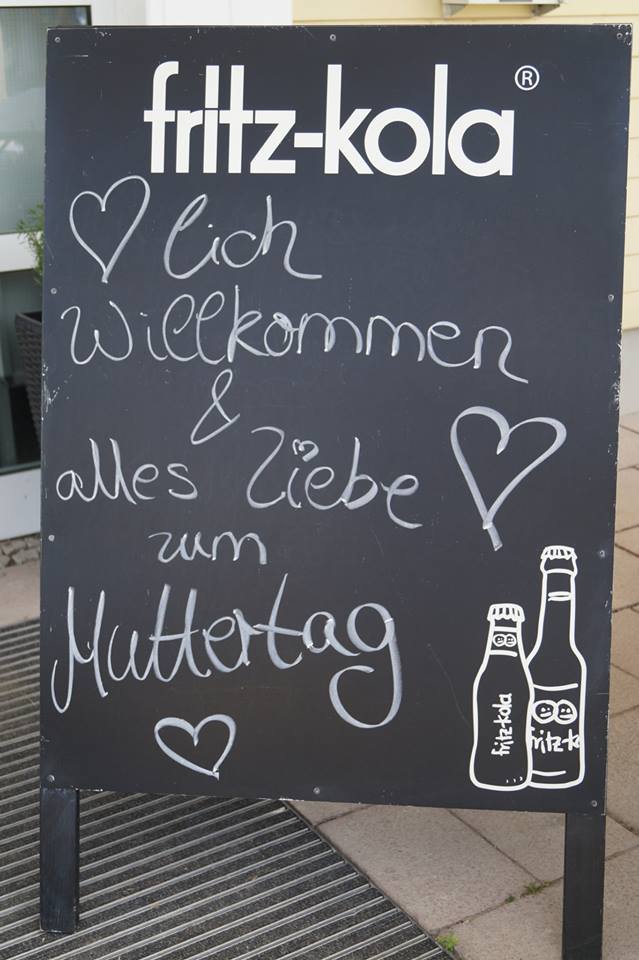 fritz-kola®
♡lich
Willkommen
&
alles Liebe
zum
Muttertag
fritz-kola
fritz-k